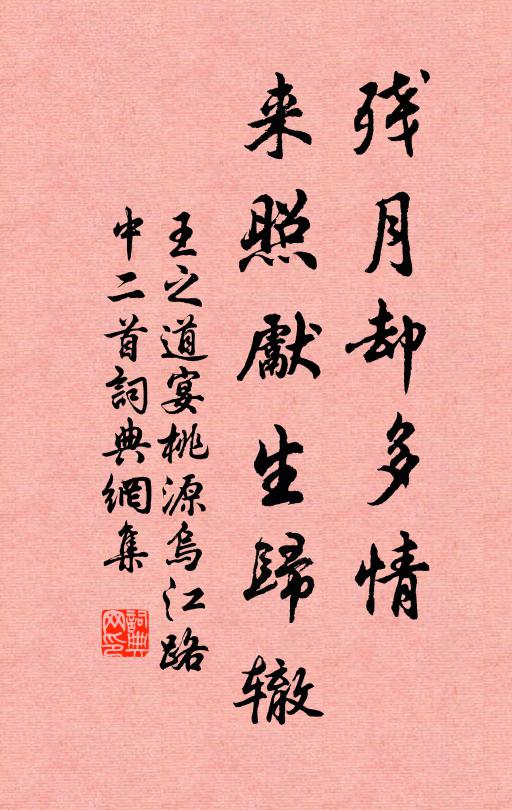 残月却多情
来照獻生歸辙
王之道宴桃源烏江路
中二首詞典網集
詞典
网印